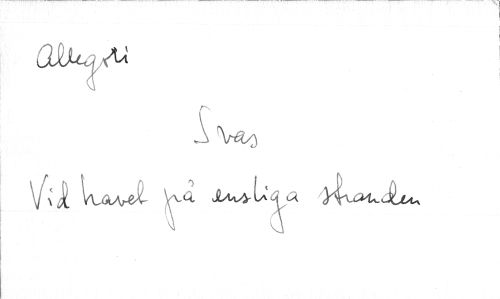 Allegori
Svas
Vid havet på ensliga stranden